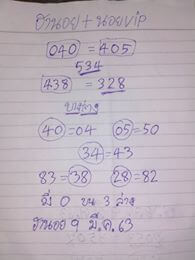 ฮานอย + นอยvip
040 = 405
534
438 = 328
บน,ล่าง
40 = 04 05 = 50
34 = 43
83 = 38 28 = 82
มี 0 บน 3 ล่าง
ฮานอย 9 มี.ค.63